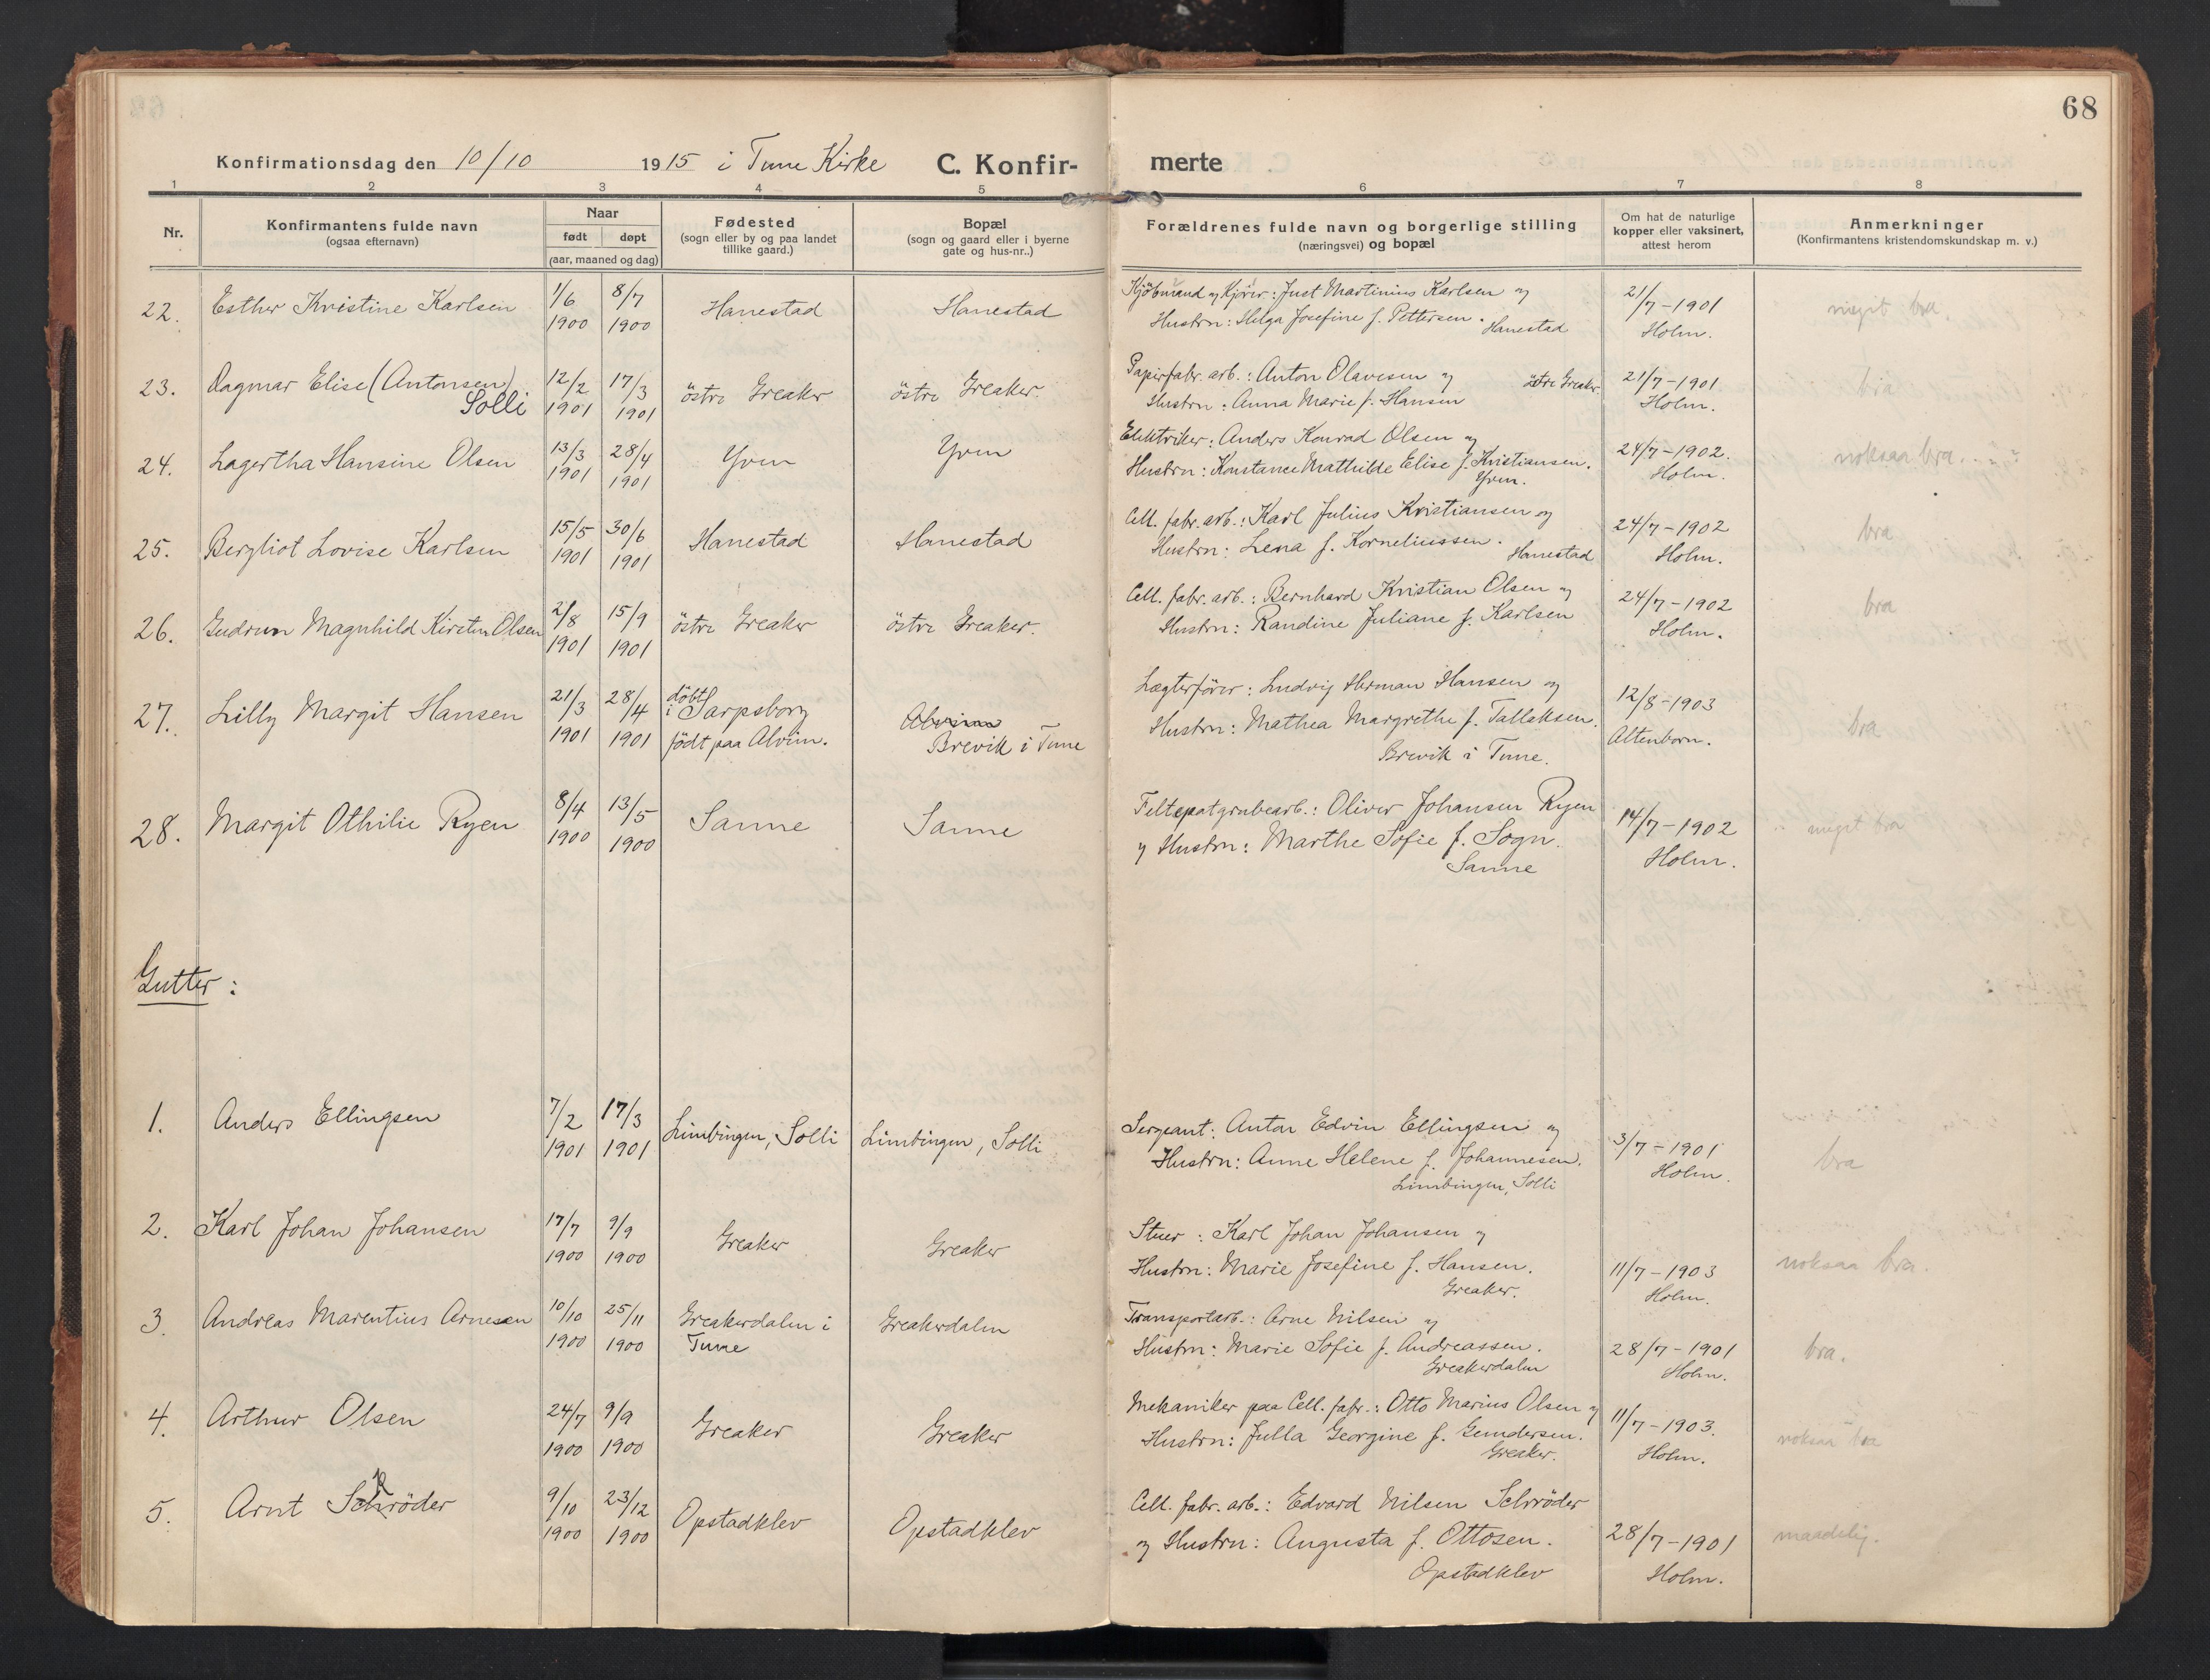 68
Konfirmationsdag den 10/10 1915 i Tune Kirke C. Konfir-merte
1 2 3 4 5 6 7 8
Nr.
Konfirmantens fulde navn
(ogsaa efternavn)
Naar
født døpt
(aar, maaned og dag)
Fødested
(sogn eller by og paa landet
tillike gaard.)
Bopæl
(sogn og gaard eller i byerne
gate og hus-nr..)
Forældrenes fulde navn og borgerlige stilling
(næringsvei) og bopæl
Om hat de naturlige
kopper eller vaksinert,
attest herom
Anmerkninger
(Konfirmantens kristendomskundskap m. v.)
22. Esther Kristine Karlsen 1/6 1900 8/7 1900 Hanestad Hanestad
Kjöbmand og Kjörer: Just Martinius Karlsen og
Hustru: Helga Josefine f. Pettersen. Hanestad
21/7-1901 Holm.
meget bra.
23. Dagmar Elise (Antonsen) Solli 12/2 1901 17/3 1901 östre Greaker östre Greaker.
Papirfabr. arb.: Anton Olavesen og östre Greaker.
Hustru: Anna Marie f. Hansen
21/7-1901 Holm.
bra
24. Lagertha Hansine Olsen 13/3 1901 28/4 1901 Yven Yven
Elektriker: Anders Konrad Olsen og
Hustru: Konstance Mathilde Elise f. Kristiansen.
Yven.
24/7-1902. Holm.
noksaa bra.
25. Bergliot Lovise Karlsen 15/5 1901 30/6 1901 Hanestad Hanestad
Cell. fabr. arb.: Karl Julius Kristiansen og
Hustru: Lena f. Korneliussen.
Hanestad
24/7-1902 Holm.
bra
26. Gudrun Magnhild Kirsten Olsen 2/8 1901 15/9 1901 östre Greaker östre Greaker.
Cell. fabr. arb.: Bernhard Kristian Olsen og
Hustru: Randine Juliane f. Karlsen
24/7-1902 Holm.
bra
27. Lilly Margit Hansen 21/3 1901 28/4 1901 döbt i Sarpsborg
født paa Alvim. Alvim
Brevik i Tune
Lægterförer: Ludvig Herman Hansen og
Hustru: Mathea Margrethe f. Tallaksen.
Brevik i Tune.
12/8-1903
Altenborn.
bra
28. Margit Othilie Ryen 8/4 1900 13/5 1900 Sanne Sanne
Feltspatgrubearb.: Oliver Johansen Ryen
og Hustru: Marthe Sofie f. Sogn.
Sanne
14/7-1902
Holm.
meget bra
Gutter:
1. Anders Ellingsen 7/2 1901 17/3 1901 Limbingen, Solli Limbingen, Solli
Sergeant: Anton Edvin Ellingsen og
Hustru: Anne Helene f. Johannesen.
Limbingen, Solli
3/7-1901
Holm.
bra
2. Karl Johan Johansen 17/7 1900 9/9 1900 Greaker Greaker
Stuer: Karl Johan Johansen og
Hustru: Marie Josefine f. Hansen.
Greaker.
11/7-1903
Holm.
noksaa bra.
3. Andreas Marentius Arnesen 10/10 1900 25/11 1900 Greakerdalen i
Tune Greakerdalen
Transportarb.: Arne Nilsen og
Hustru: Marie Sofie f. Andreassen.
Greakerdalen
28/7-1901
Holm.
bra.
4. Arthur Olsen 24/7 1900 9/9 1900 Greaker Greaker
Mekaniker paa Cell. fabr.: Otto Marius Olsen og
Hustru: Julla Georgine f. Gundersen.
Greaker.
11/7-1903.
Holm.
noksaa bra
5. Arnt Schröder 9/10 1900 23/12 1900 Opstadklev Opstadklev
Cell. fabr. arb.: Edvard Nilsen Schröder
og Hustru: Augusta f. Ottosen.
Opstadklev
28/7-1901
Holm.
maadelig.